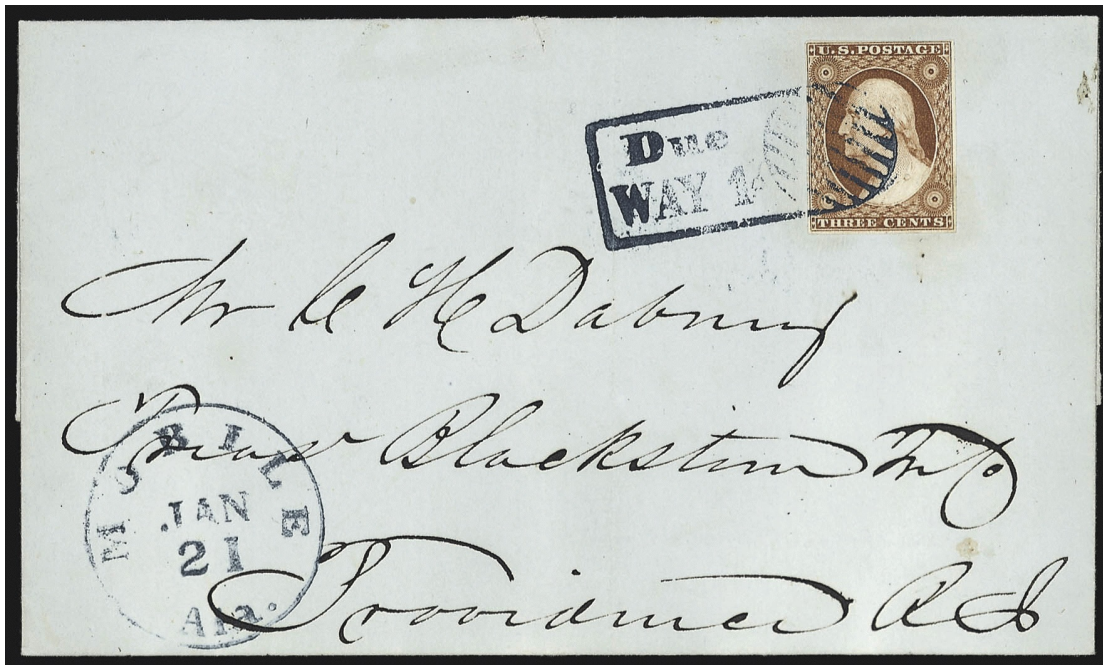 U.S. POSTAGE
THREE CENTS
Due
WAY 1
Mr C H Dabney
Treasr Blackston M Co
Providence R I
MOBILE
JAN
21
Ala.